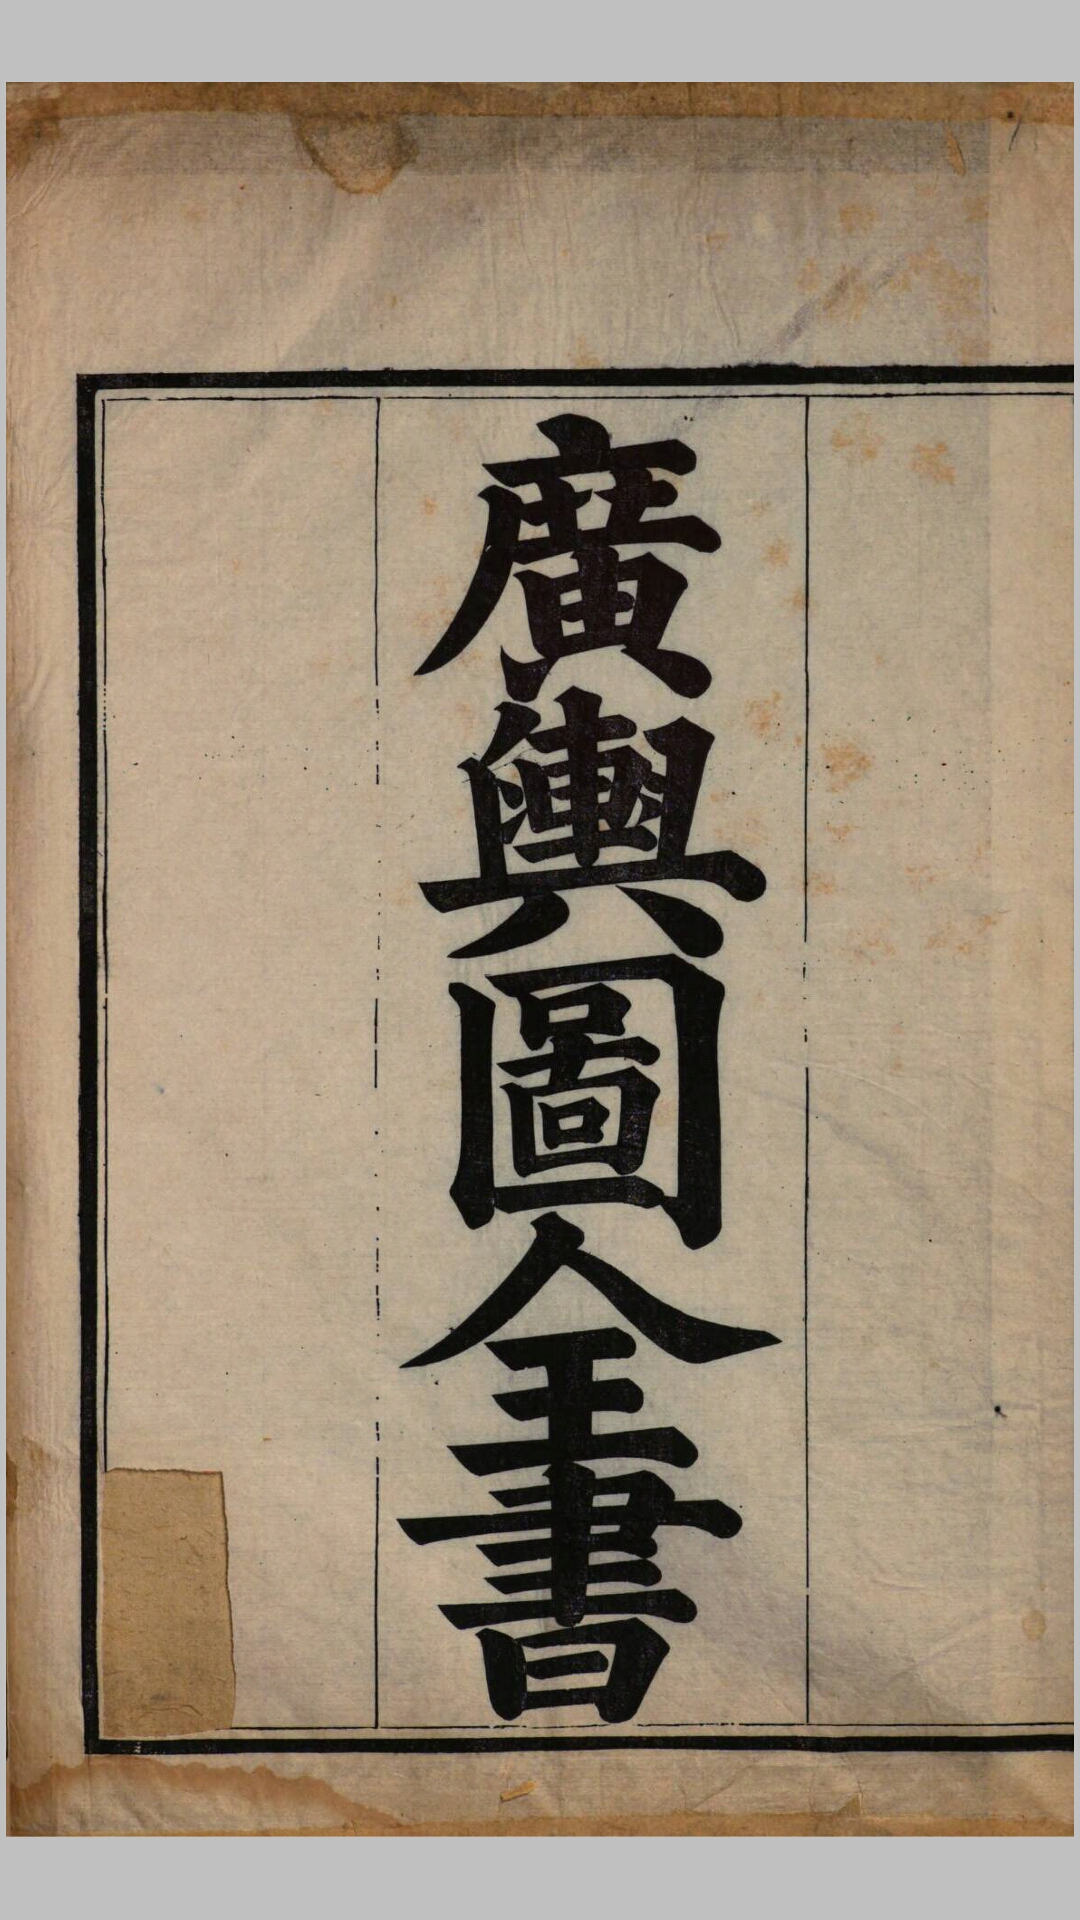 廣輿圖全書